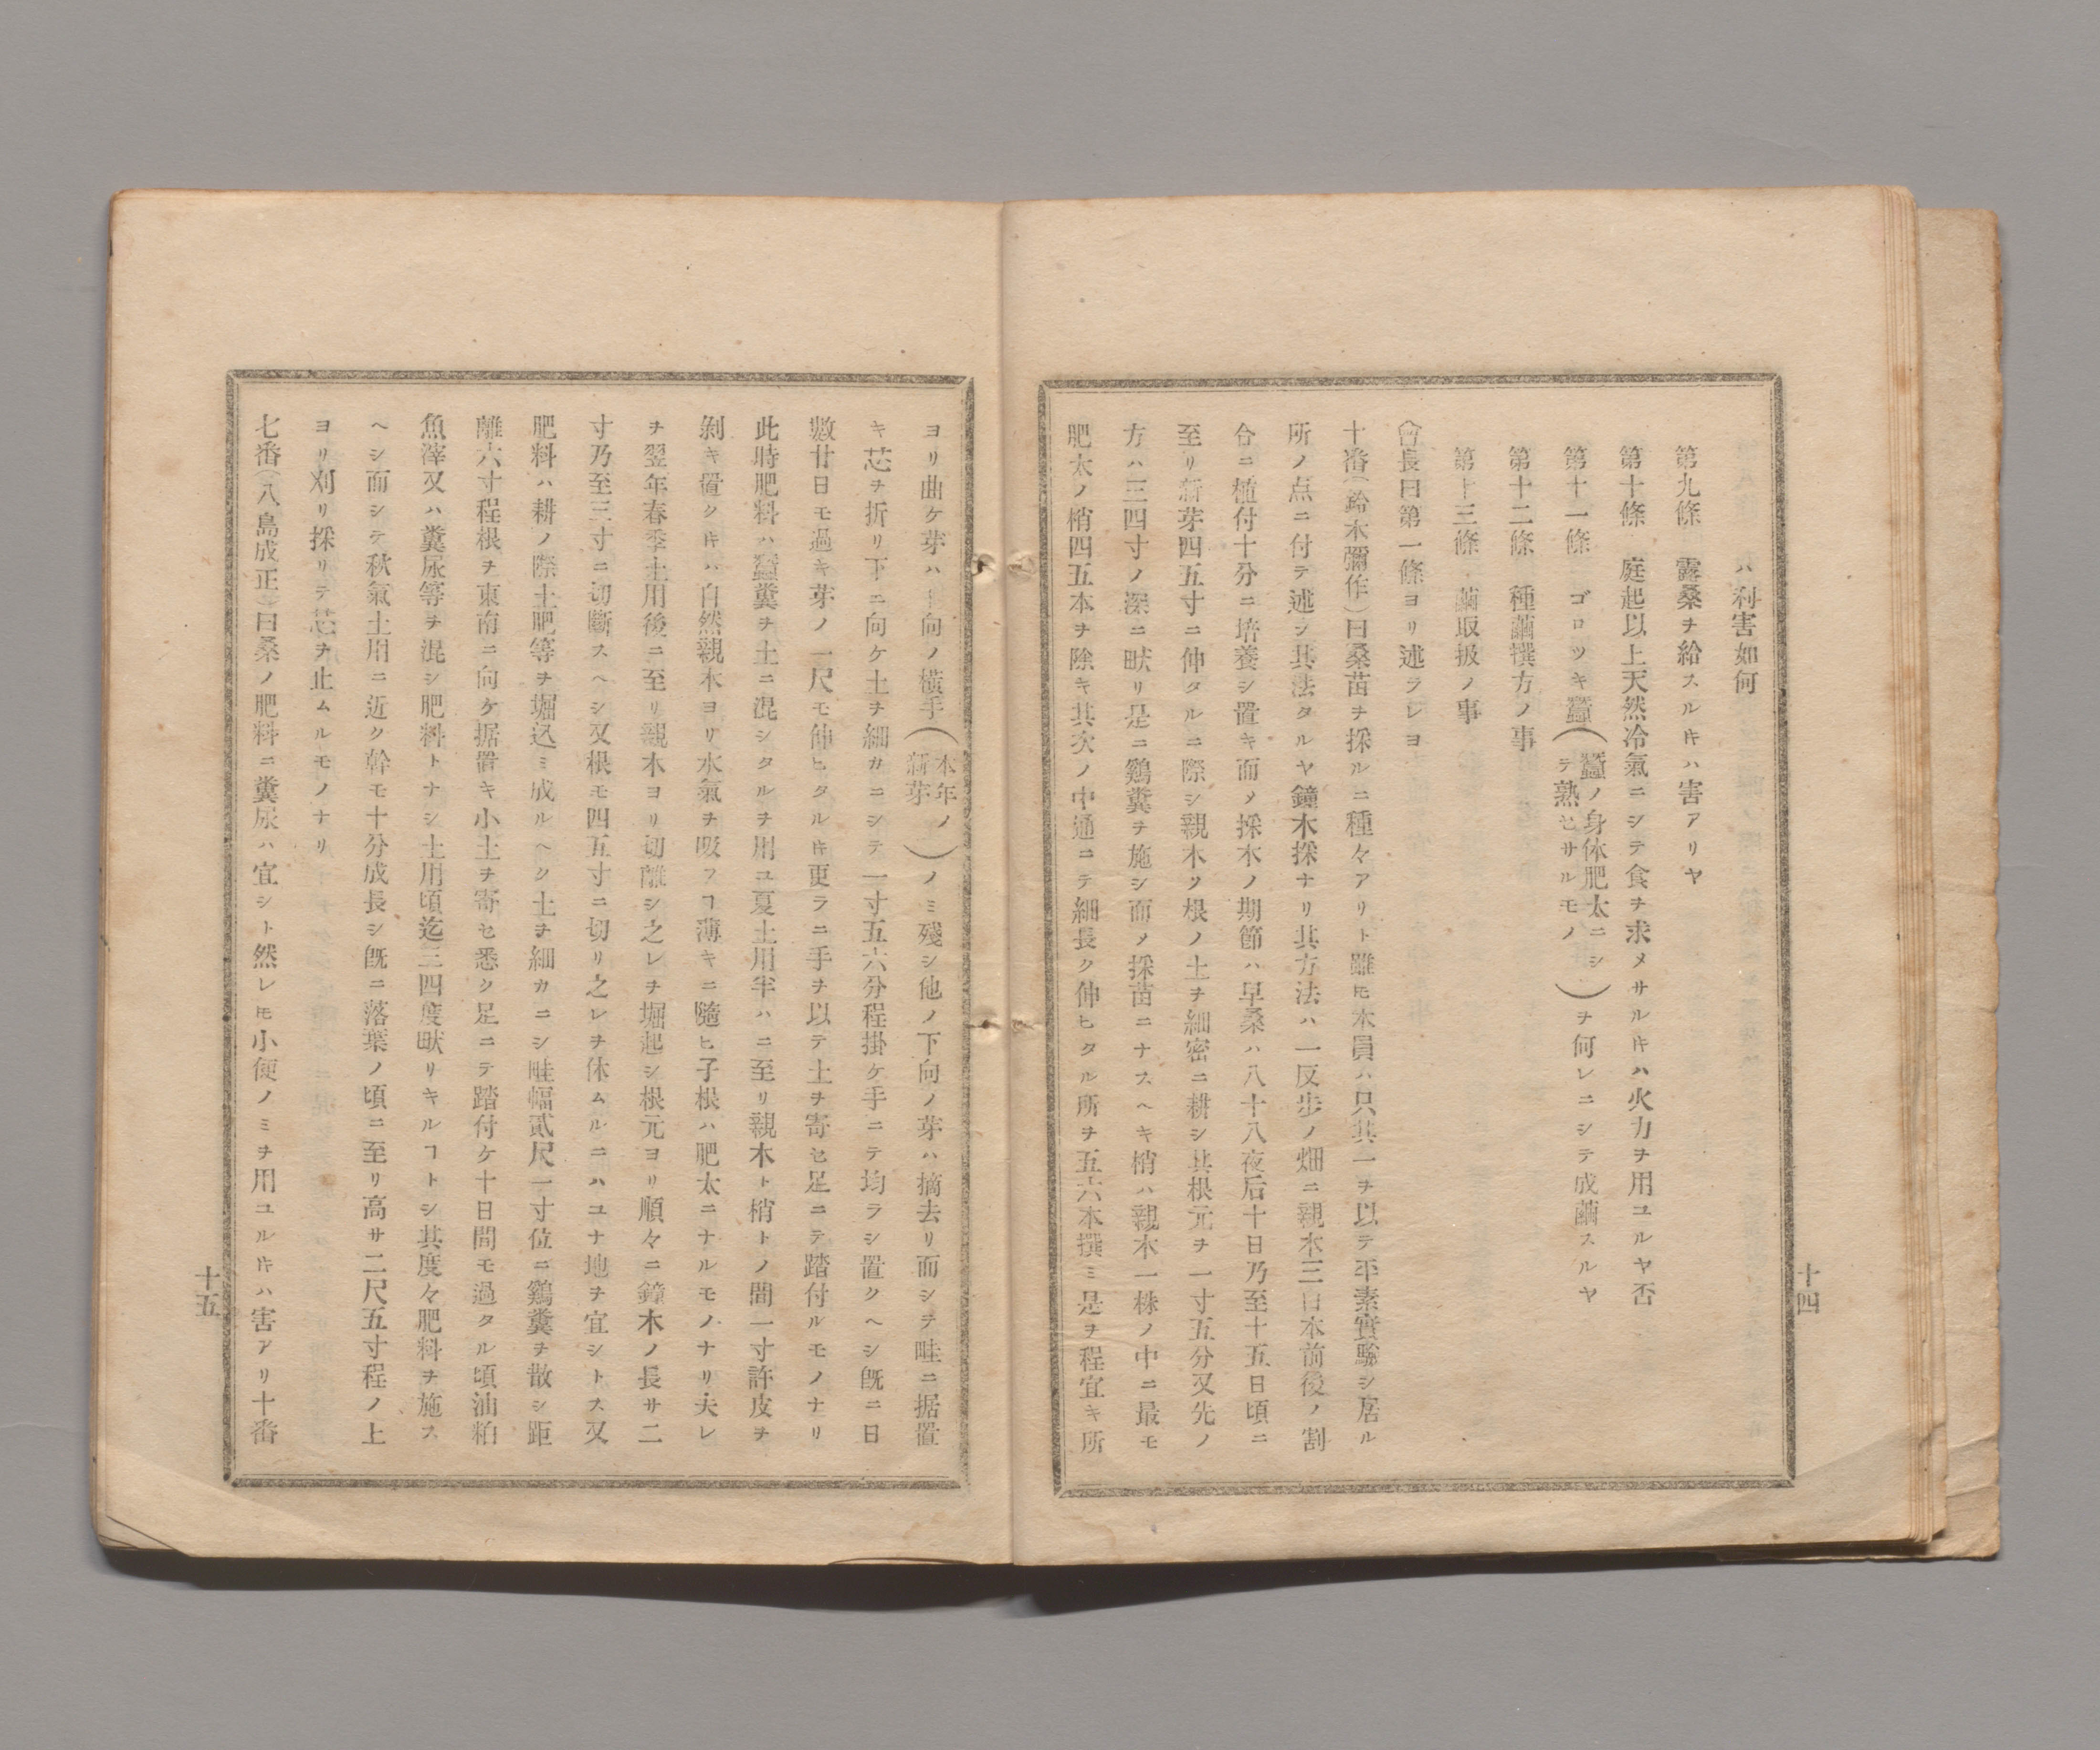 ハ利害如何
第九條　露桑ヲ給スルキハ害アリヤ
第十條　庭起以上天然冷氣ニシテ食ヲ求メサルキハ火力ヲ用ユルヤ否
第十一條　ゴロツキ蠶（蠶ノ身体肥太ニシテ熟セサルモノ）ヲ何レニシテ成繭スルヤ
第十二條　種繭撰方ノ事
第十三條　繭取扱ノ事
會長曰第一條ヨリ述ラレヨ
十番（鈴木彌作）曰桑苗ヲ採ルニ種々アリト雖モ本員ハ只其一ヲ以テ平素實驗シ居ル
所ノ点ニ付テ述シ其法タルヤ鐘木採ナリ其方法ハ一反歩ノ畑ニ親木三百本前後ノ割
合ニ植付十分ニ培養シ置キ而メ採木ノ期節ハ早桑ハ八十八夜后十日乃至十五日頃ニ
至リ新芽四五寸ニ伸タルニ際シ親木ツ根ノ土ヲ細密ニ耕シ其根元ヲ一寸五分又先ノ
方ハ三四寸ノ深ニ畎リ是ニ鷄糞ヲ施シ而メ採苗ニナスヘキ梢ハ親木一株ノ中ニ最モ
肥太ノ梢四五本ヲ除キ其次ノ中通ニテ細長ク伸ヒタル所ヲ五六本撰ミ是ヲ程宜キ所
十四
ヨリ曲ケ芽ハ上向ノ横手（本年ノ新芽）ノミ殘シ他ノ下向ノ芽ハ摘去リ而シテ畦ニ据置
キ芯ヲ折リ下ニ向ケ土ヲ細カニシテ一寸五六分程掛ケ手ニテ均ラシ置クヘシ既ニ日
數廿日モ過キ芽ノ一尺モ伸ヒタルキ更ラニ手ヲ以テ土ヲ寄セ足ニテ踏付ルモノナリ
此時肥料ハ蠶糞ヲ土ニ混シタルヲ用ユ夏土用半ハニ至リ親木ト梢トノ間一寸許皮ヲ
剝キ置クキハ自然親木ヨリ水氣ヲ吸フコ薄キニ隨ヒ子根ハ肥太ニナルモノナリ夫レ
ヲ翌年春季土用後ニ至リ親木ヨリ切離シ之レヲ堀起シ根元ヨリ順々ニ鐘木ノ長サ二
寸乃至三寸ニ切斷スヘシ又根モ四五寸ニ切リ之レヲ休ムルニハユナ地ヲ宜シトス又
肥料ハ耕ノ際土肥等ヲ堀込ミ成ルヘク土ヲ細カニシ畦幅貳尺一寸位ニ鷄糞ヲ散シ距
離六寸程根ヲ東南ニ向ケ据置キ小土ヲ寄セ悉ク足ニテ踏付ケ十日間モ過タル頃油粕
魚滓又ハ糞尿等ヲ混シ肥料トナシ土用頃迄三四度畎リキルコトシ其度々肥料ヲ施ス
ヘシ而シテ秋氣土用ニ近ク幹モ十分成長シ既ニ落葉ノ頃ニ至リ高サ二尺五寸程ノ上
ヨリ刈リ採リテ芯ヲ止ムルモノナリ
七番（八島成正）曰桑ノ肥料ニ糞尿ハ宜シト然レモ小便ノミヲ用ユルキハ害アリ十番
十五